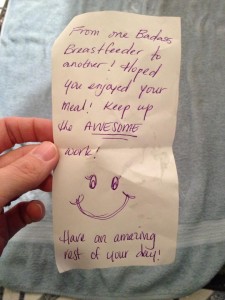 From one Badass
Breastfeeder to
another! Hoped
you enjoyed your
meal! Keep up
the AWESOME
work!
Have an amazing
rest of your day!